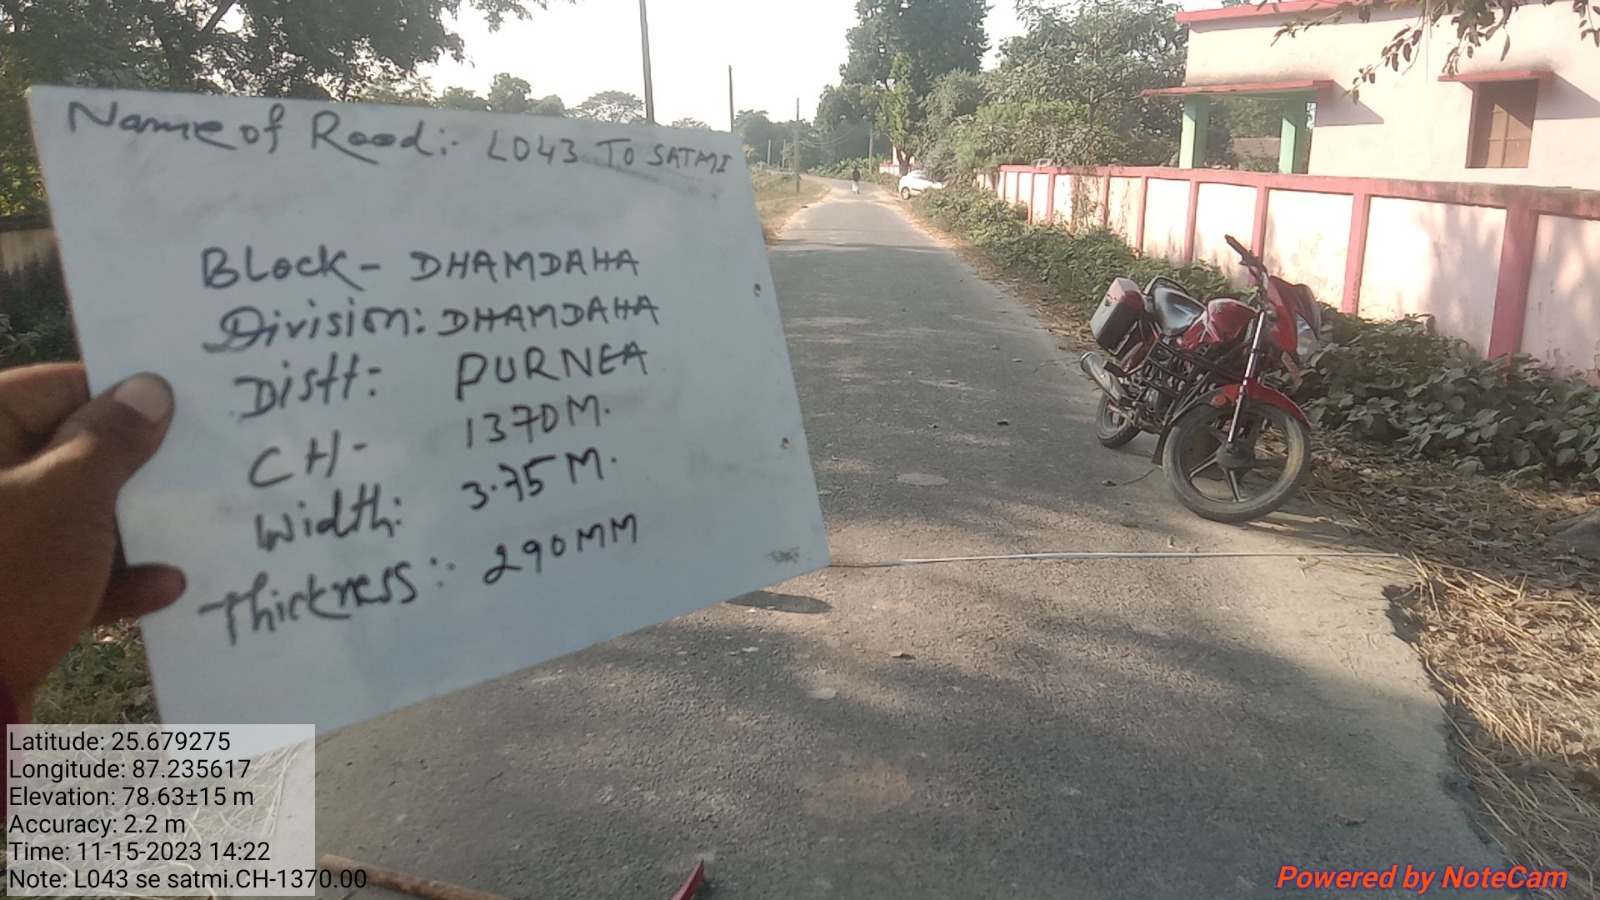 Name of Road:- L043 TO SATMI
Block- DHAMDAHA
Division: DHAMDAHA
Distt: PURNEA
CH- 1370M.
Width: 3.75M.
Thickness:- 290MM
Latitude: 25.679275
Longitude: 87.235617
Elevation: 78.63±15 m
Accuracy: 2.2 m
Time: 11-15-2023 14:22
Note: L043 se satmi.CH-1370.00
Powered by NoteCam